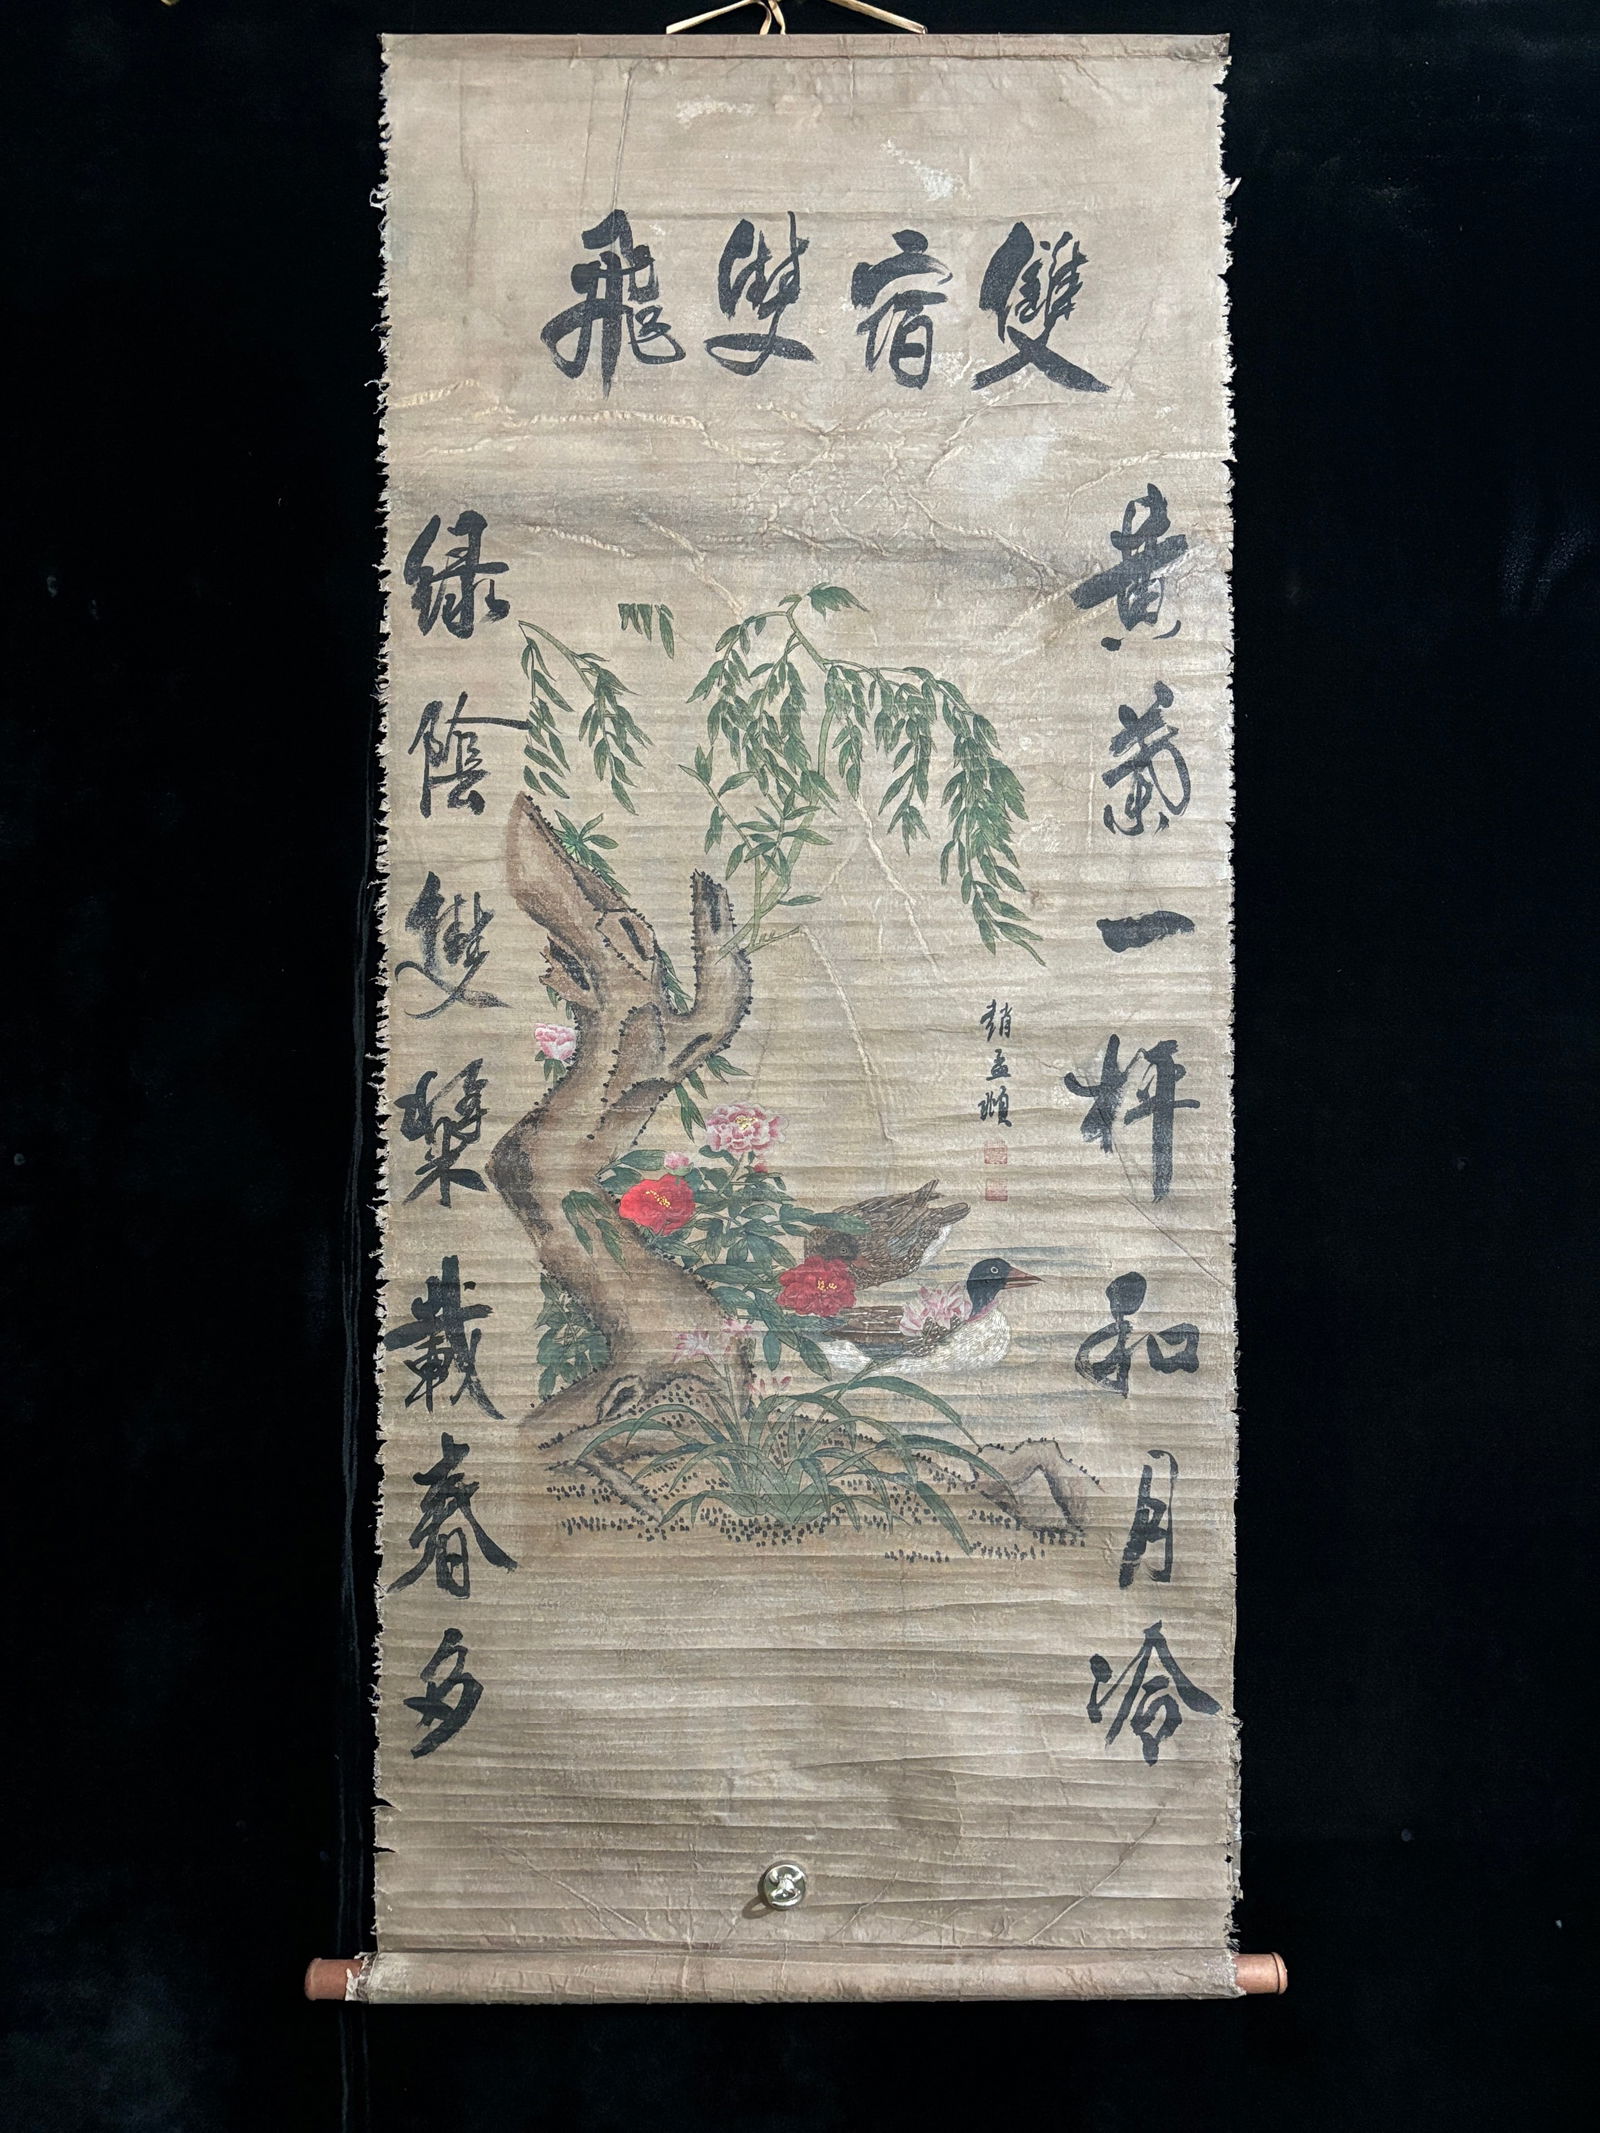 雙宿雙飛
黄菊一枰和月冷
绿陰雙槳載春多
趙孟頫